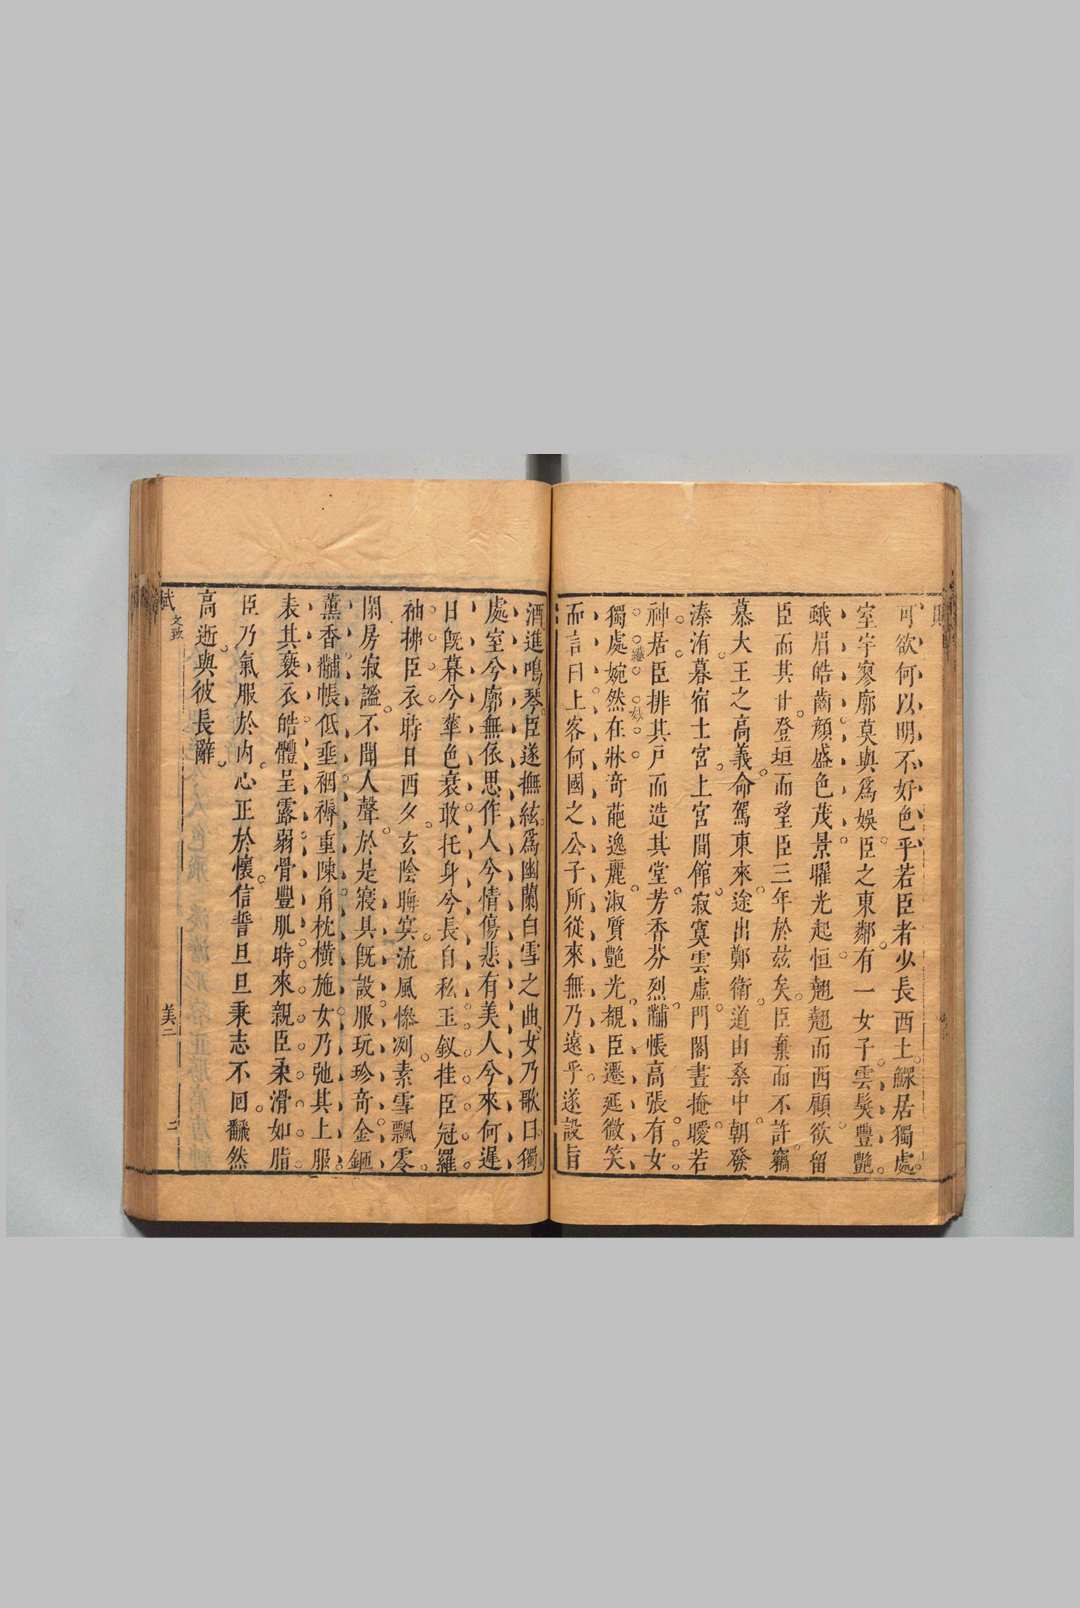 可欲何以明不好色乎若臣者少長西土鰥居獨處
室宇寥廓莫與爲娛臣之東鄰有一女子雲髮豐艶
蛾眉皓齒顏盛色茂景曜光起恒翹翹而西顧欲留
臣而共止登垣而望臣三年於兹矣臣棄而不許竊
慕大王之高義命駕東來途出鄭衛道由桑中朝發
溱洧暮宿上宮上宮閒館寂寞雲虛門閤晝掩曖若
神居臣排其戸而造其堂芳香芬烈黼帳高張有女
獨處婉然在牀奇葩逸麗淑質艶光覩臣遷延微笑
而言曰上客何國之公子所從來無乃遠乎遂設旨
酒進鳴琴臣遂撫絃爲幽蘭白雪之曲女乃歌曰獨
處室兮廓無依思作人兮情傷悲有美人兮來何遲
日既暮兮華色衰敢托身兮長自私玉釵挂臣冠羅
袖拂臣衣時日西夕玄陰晦冥流風慘冽素雪飄零
閑房寂謐不聞人聲於是寢具既設服玩珍奇金鉔
薰香黼帳低垂裀褥重陳角枕橫施女乃弛其上服
表其褻衣皓體呈露弱骨豐肌時來親臣柔滑如脂
臣乃氣服於内心正於懷信誓旦旦秉志不回飜然
高逝與彼長辭
賦
文致
美二
二